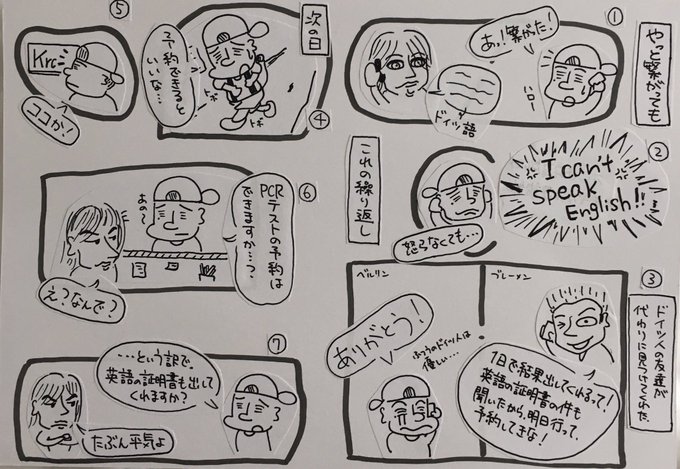 ①
やっと繋がっても
あっ!繋がった!
ハロー
ドイツ語
②
I can't
speak
English!!
これの繰り返し
怒らなくても…
③
ドイツ人の友達が
代わりに見つけてくれた
ブレーメン
1日で結果出してくれるって!
英語の証明書の件も
聞いたから、明日行って
予約してきな!
ベルリン
ありがとう!
ふつうのドイツ人は
優しい…
次の日
④
予約できると
いいな…
トボ
トボ
⑤
Krc
ココか!
⑥
PCR
テストの予約は
できますか…?
あの〜
え?なんで?
⑦
…という訳で、
英語の証明書も出して
くれますか?
たぶん平気よ